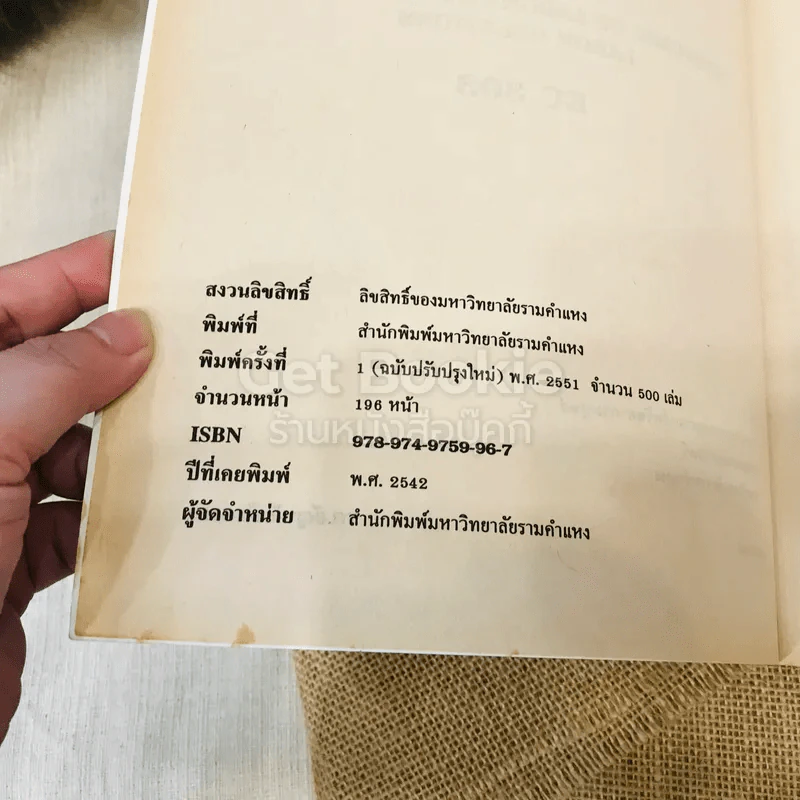 EC 303
สงวนลิขสิทธิ์ ลิขสิทธิ์ของมหาวิทยาลัยรามคำแหง
พิมพ์ที่ สำนักพิมพ์มหาวิทยาลัยรามคำแหง
พิมพ์ครั้งที่ 1 (ฉบับปรับปรุงใหม่) พ.ศ. 2551 จำนวน 500 เล่ม
Get Bookie
จำนวนหน้า 196 หน้า
ร้านหนังสือบุ๊คกี้
ISBN 978-974-9759-96-7
ปีที่เคยพิมพ์ พ.ศ. 2542
ผู้จัดจำหน่าย สำนักพิมพ์มหาวิทยาลัยรามคำแหง